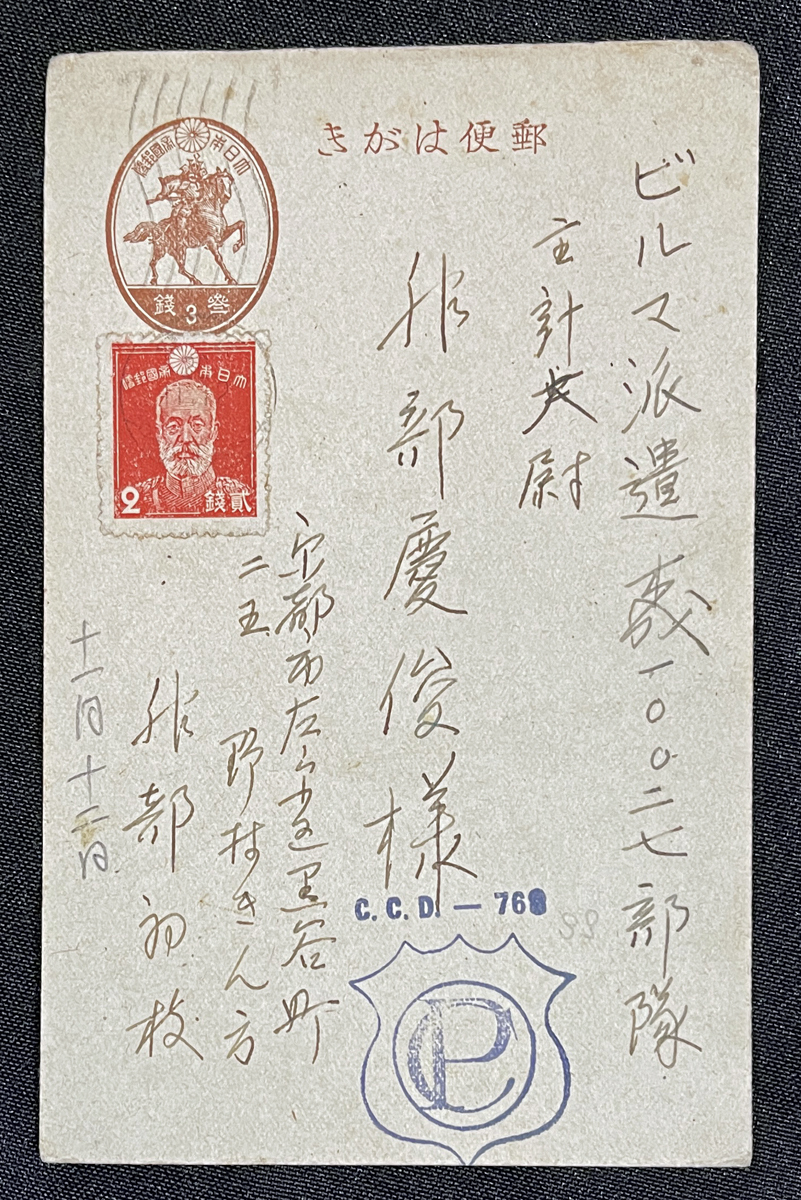 郵便はがき
大日本帝國郵便
叁3錢
大日本帝國郵便
2 貳錢
ビルマ派遣 一〇〇二七部隊
主計大尉
服部慶俊様
京都市左 区黒谷町
二五 野村きん方
服部初枝
十一月十二日
C. C. D. — 768
CP
22